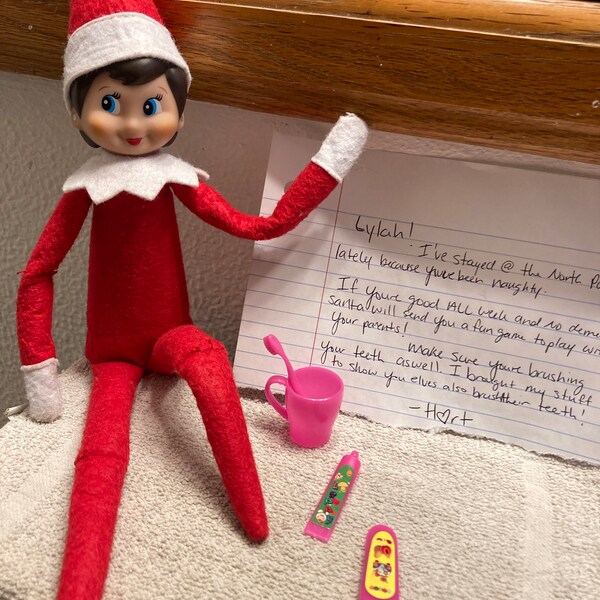 Lylah!
I've stayed @ the North Po
lately because you've been naughty.
If you're good ALL week and no deme
santa will send you a fun game to play wi
your parents!
Make sure you're brushing
your teeth aswell. I brought my stuff
to show you elves also brush their teeth!
-H♡rt